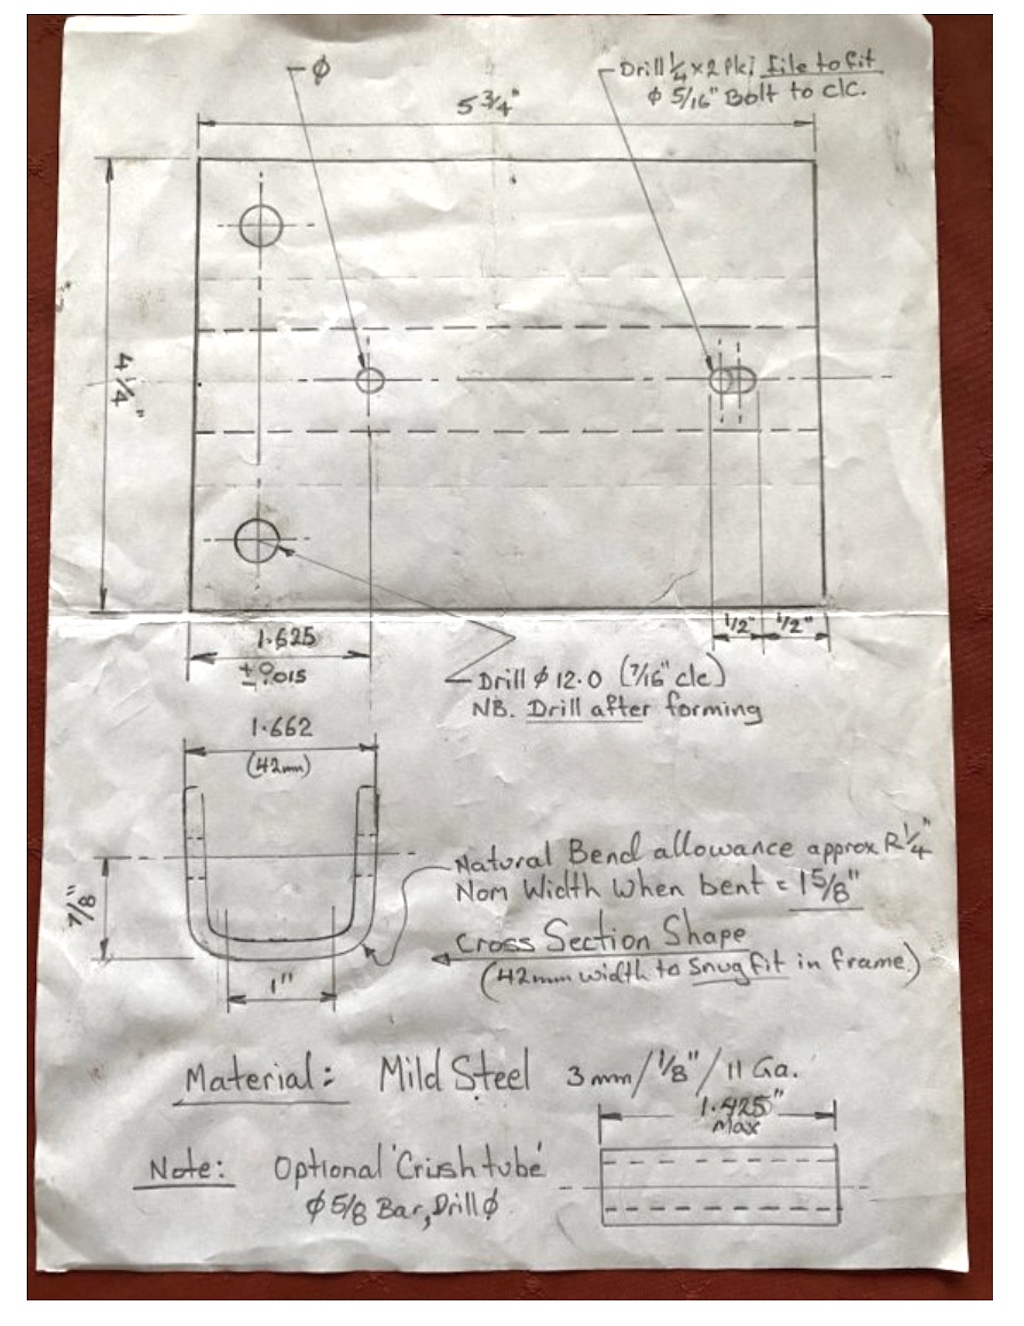 ϕ
Drill 1/4 x 2 Plc; file to fit
ϕ 5/16" Bolt to clc.
5 3/4"
4 1/4"
1.625
± 0.015
1/2" 1/2"
Drill ϕ 12.0 (7/16" clc)
NB. Drill after forming
1.662
(42mm)
Natural Bend allowance approx R 1/4"
Nom Width when bent = 1 5/8"
7/8"
Cross Section Shape
(42mm width to Snug fit in frame.)
1"
Material: Mild Steel 3mm/1/8"/11 Ga.
1.425"
Max
Note: Optional 'Crush tube'
ϕ 5/8 Bar, Drill ϕ